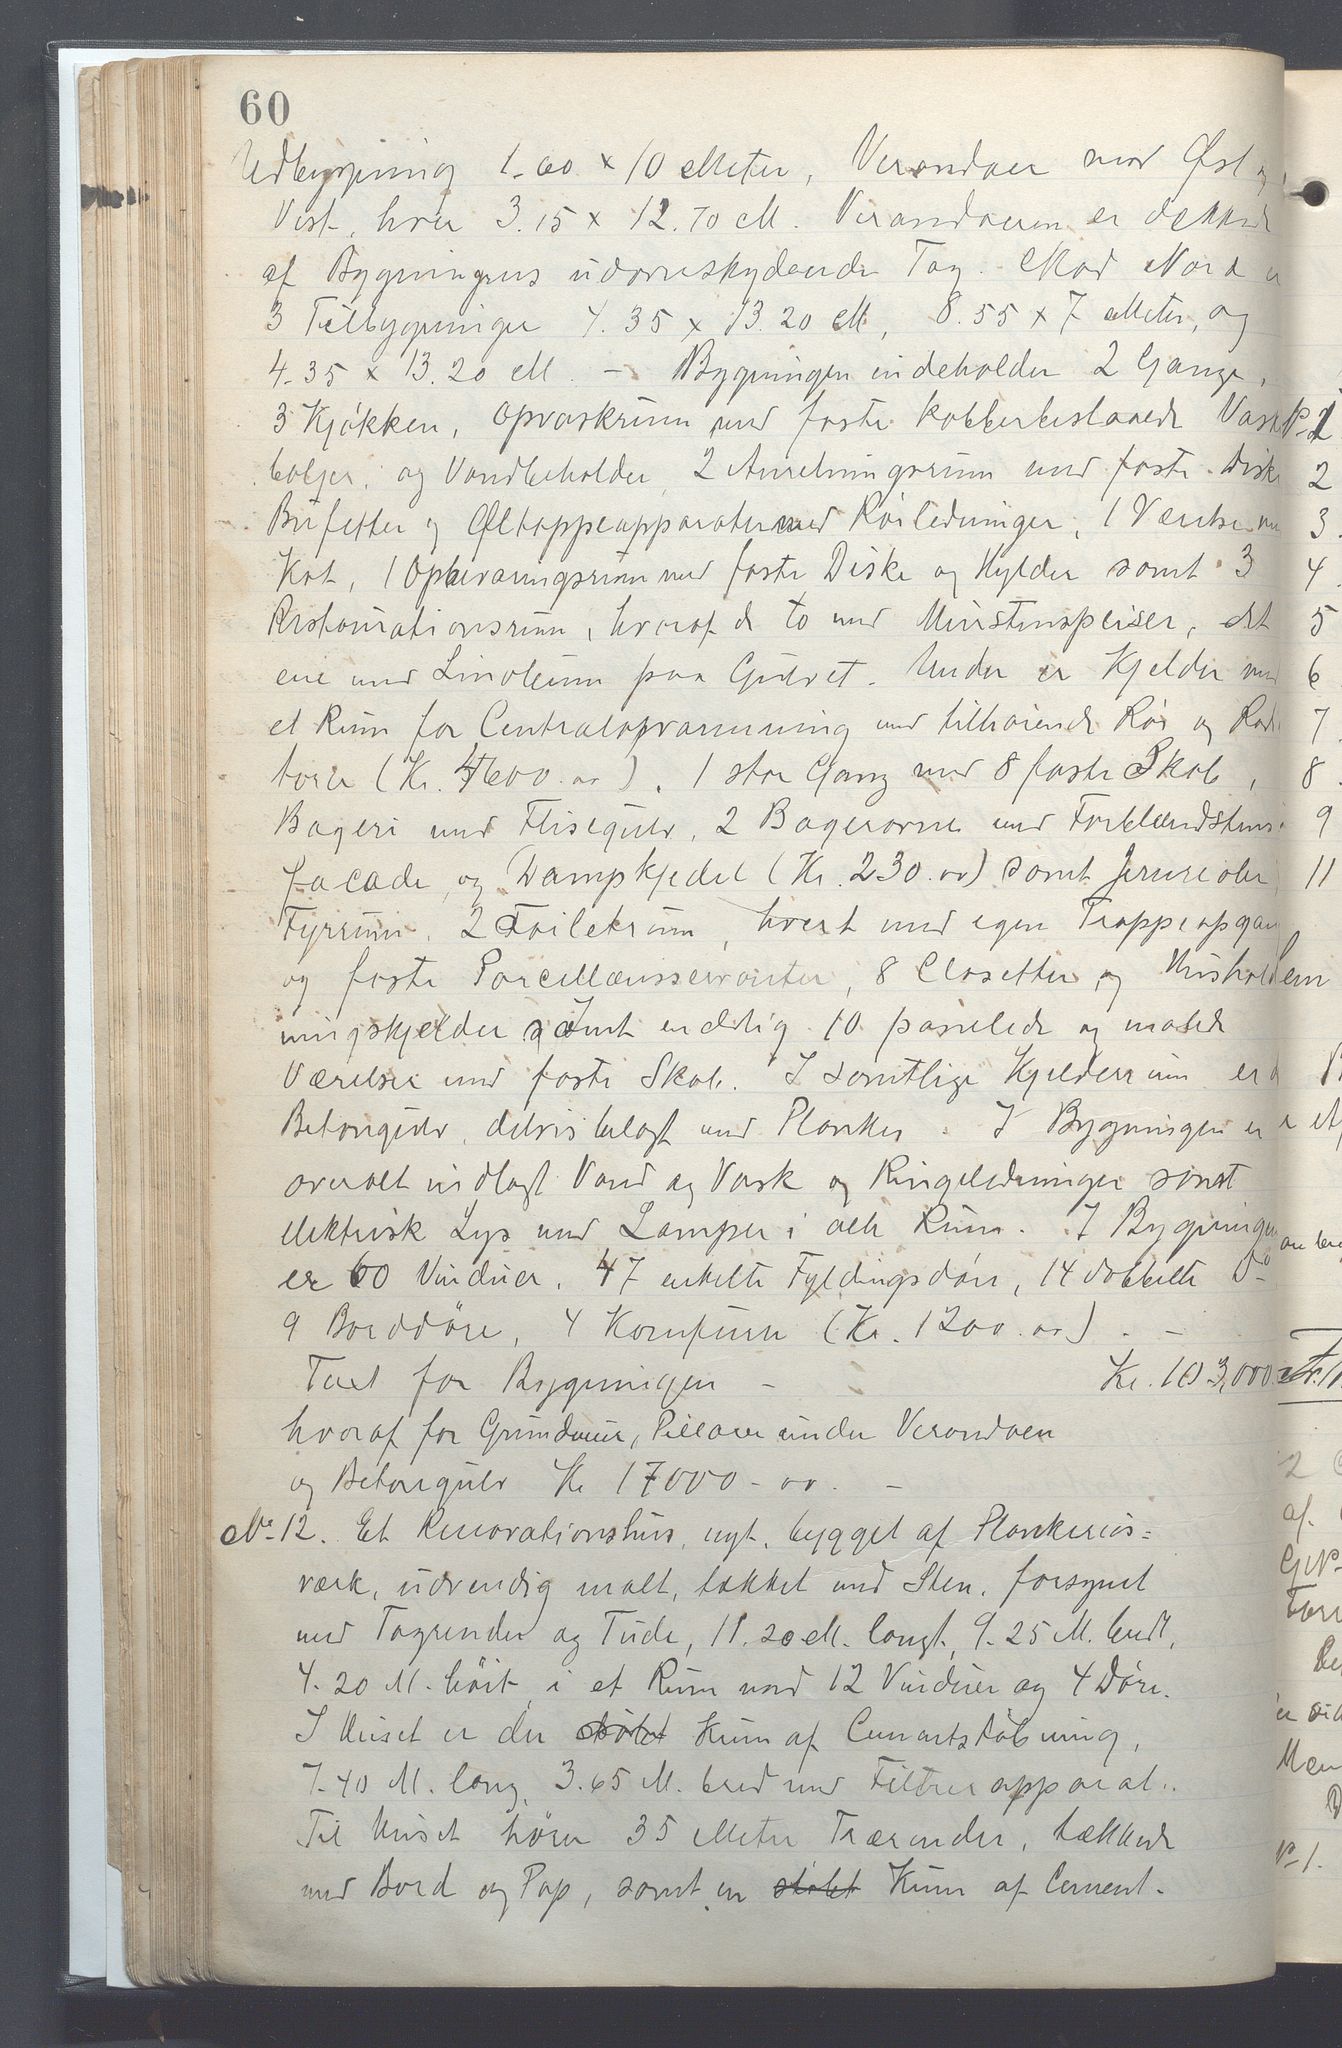 60
Udbygning 1.60 x 10 Meter, Verandaer mod Øst og
Vest, hver 3.15 x 12.70 M. Verandaerne er dækkede
af Bygningens udoverskydende Tag. Mod Nord er
3 Tilbygninger 4.35 x 13.20 M, 8.55 x 7 Meter, og
4.35 x 13.20 M. - Bygningen indeholder 2 Gange,
3 Kjøkken, Opvaskrum med faste kobberbeslaaede Vaske
baljer, og Vandbeholder, 2 Anretningsrum med faste Diske
Bufetter og Øltappeapparater med Rørledninger, 1 Værelse med
Kot, 1 Opbevaringsrum med faste Diske og Hylder samt 3
Restaurationsrum, hvoraf de to med Murstenspeiser, det
ene med Linoleum paa Gulvet. Under er Kjelder med
et Rum for Centralopvarmning med tilhørende Rør og Radia
torer (Kr. 4600.oo), 1 stor Gang med 8 faste Skab,
Bageri med Flisegulv, 2 Bagerovne med Forblændstens
facade, og Dampkjedel (Kr. 230.oo) samt
Fyrrum, 2 Toiletrum, hvert med egen Trappeopgang
og faste Porcellænsservanter, 8 Closetter og Hushold
ningskjelder samt endelig 10 panelede og malede
Værelser med faste Skab. I samtlige Kjelderrum er der
Betongulv, delvis belagt med Planker. I Bygningen er
overalt indlagt Vand og Vask og Ringeledninger samt
elektrisk Lys med Lamper i alle Rum. I Bygningen
er 60 Vinduer, 47 enkelte Fyldingsdøre, 14 dobbelte Do
9 Borddøre, 4 Komfurer (Kr. 1200.oo). -
Taxt for Bygningen - Kr. 103,000
hvoraf for Grundmur, Pillarer under Verandaen
og Betongulv Kr 17000-oo. -
No 12. Et Renovationshus, nyt, bygget af Plankerøs=
værk, udvendig malt, tækket med Sten, forsynet
med Tagrender og Tude, 11.20 M. langt, 9.25 M. bredt,
4.20 M. høit, i et Rum med 12 Vinduer og 4 Døre.
I Huset er der støbt Kum af Cementstøbning,
7.40 M. lang, 3.65 M. bred med Filtrerapparat.
Til Huset hører 35 Meter Trærender, tækkede
med Bord og Pap, samt en støbt Kum af Cement-
No 1
2
3.
4
5
6
7.
8.
9
11